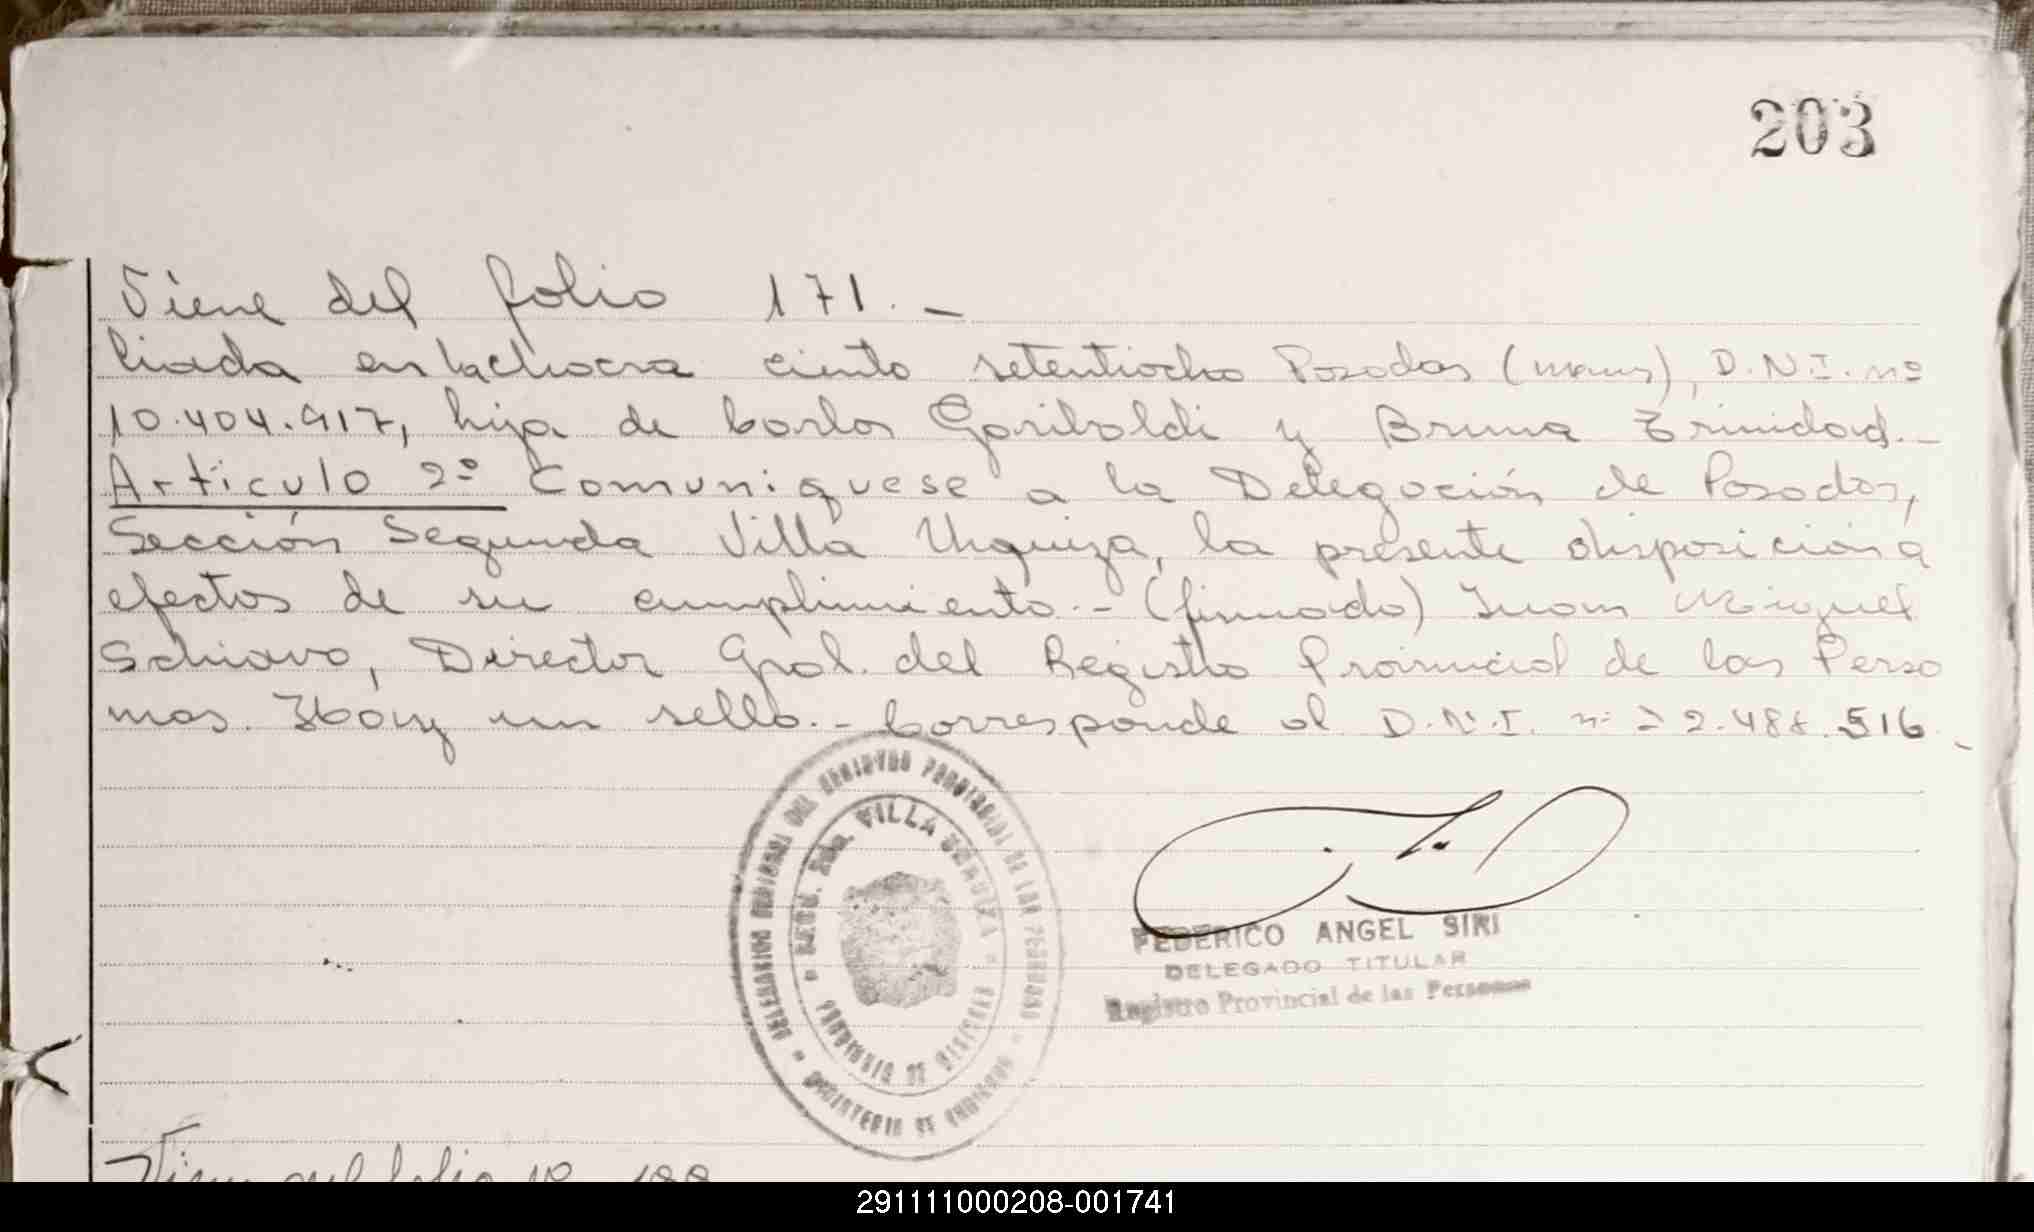 203
Viene del folio 171.-
liada en la chacra ciento setentiocho Posadas (mnes), D.N.I. nº
10.404.917, hija de Carlos Gariboldi y Bruna Trinidad.-
Articulo 2º Comuniquese a la Delegación de Posadas,
Sección Segunda Villa Urquiza, la presente disposición a
efectos de su cumplimiento.- (firmado) Juan Miguel
Schiavo, Director Gral. del Registro Provincial de las Perso
nas. Hay un sello.- Corresponde al D.N.I. nº 22.488.516.-
DELEGACION REGIONAL DEL REGISTRO PROVINCIAL DE LAS PERSONAS
SECC. 2da. VILLA URQUIZA
PROVINCIA DE MISIONES
MINISTERIO DE GOBIERNO
FEDERICO ANGEL SIRI
DELEGADO TITULAR
Registro Provincial de las Personas
Viene del folio Nº
291111000208-001741